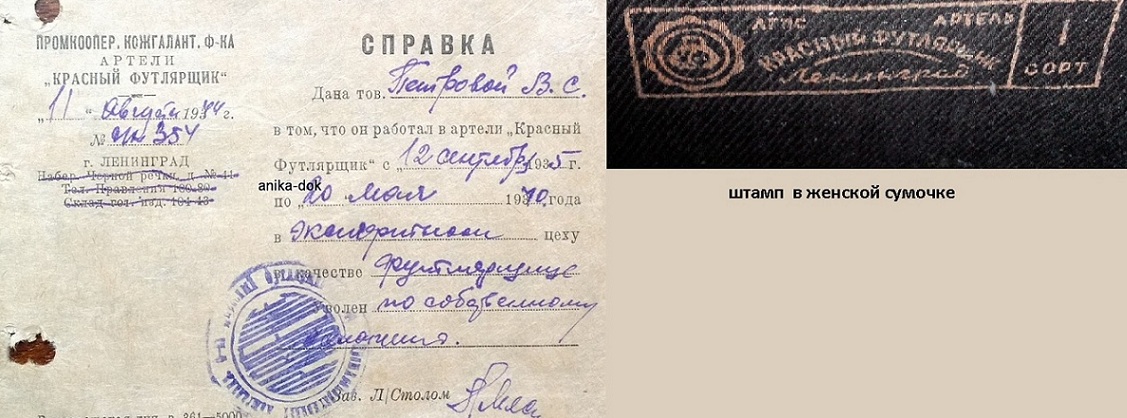 ПРОМКООПЕР. КОЖГАЛАНТ. Ф-КА
АРТЕЛИ
„КРАСНЫЙ ФУТЛЯРЩИК“
„11“ Августа 1944 г.
№ 354
г. ЛЕНИНГРАД
Набер. Черной речки, д. № 41
Тел. Правления
Склад гот. изд.
СПРАВКА
Дана тов. Петровой В. С.
в том, что он работал в артели „Красный
Футлярщик“ с „12 сентября 1935 г.
anika-dok
по „20 мая 19 года
в цеху
в качестве футлярщице
Уволен по собственному
желанию.
Зав. Л/Столом
АРТЕЛЬ
КРАСНЫЙ ФУТЛЯРЩИК
Ленинград
I
СОРТ
штамп в женской сумочке